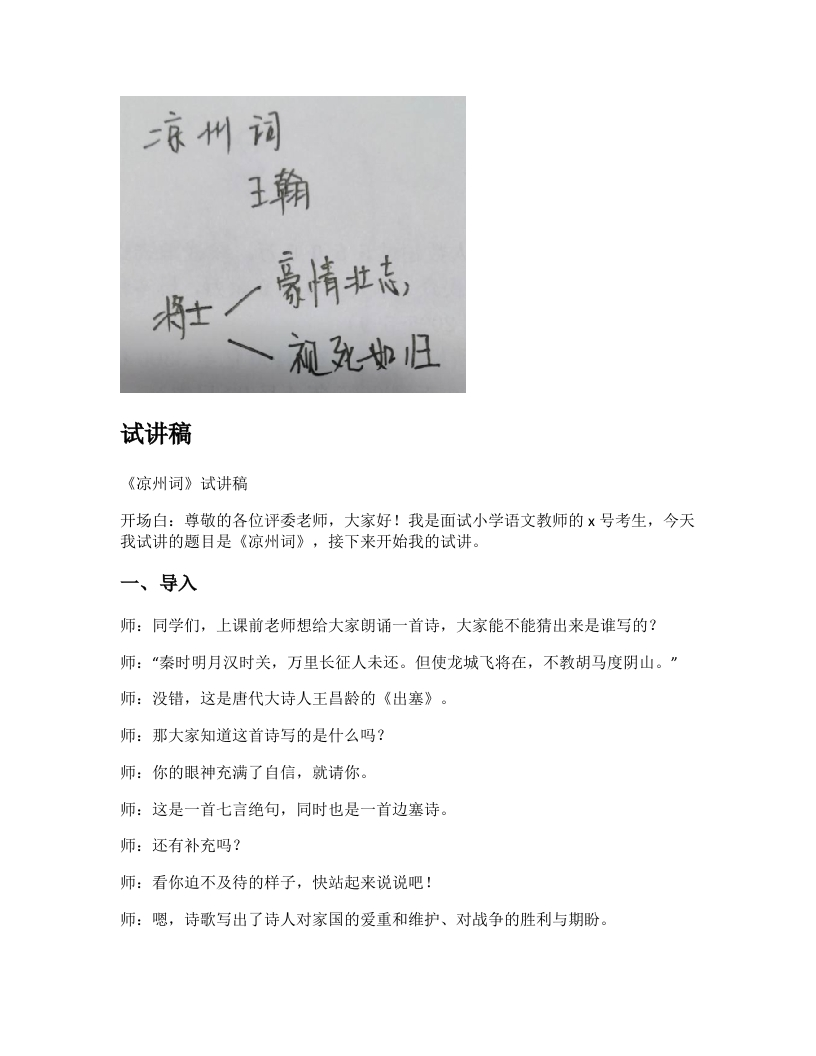 凉州词
王翰
豪情壮志,
将士
视死如归
试讲稿
《凉州词》试讲稿
开场白：尊敬的各位评委老师，大家好！我是面试小学语文教师的 x 号考生，今天
我试讲的题目是《凉州词》，接下来开始我的试讲。
一、导入
师：同学们，上课前老师想给大家朗诵一首诗，大家能不能猜出来是谁写的？
师：“秦时明月汉时关，万里长征人未还。但使龙城飞将在，不教胡马度阴山。”
师：没错，这是唐代大诗人王昌龄的《出塞》。
师：那大家知道这首诗写的是什么吗？
师：你的眼神充满了自信，就请你。
师：这是一首七言绝句，同时也是一首边塞诗。
师：还有补充吗？
师：看你迫不及待的样子，快站起来说说吧！
师：嗯，诗歌写出了诗人对家国的爱重和维护、对战争的胜利与期盼。